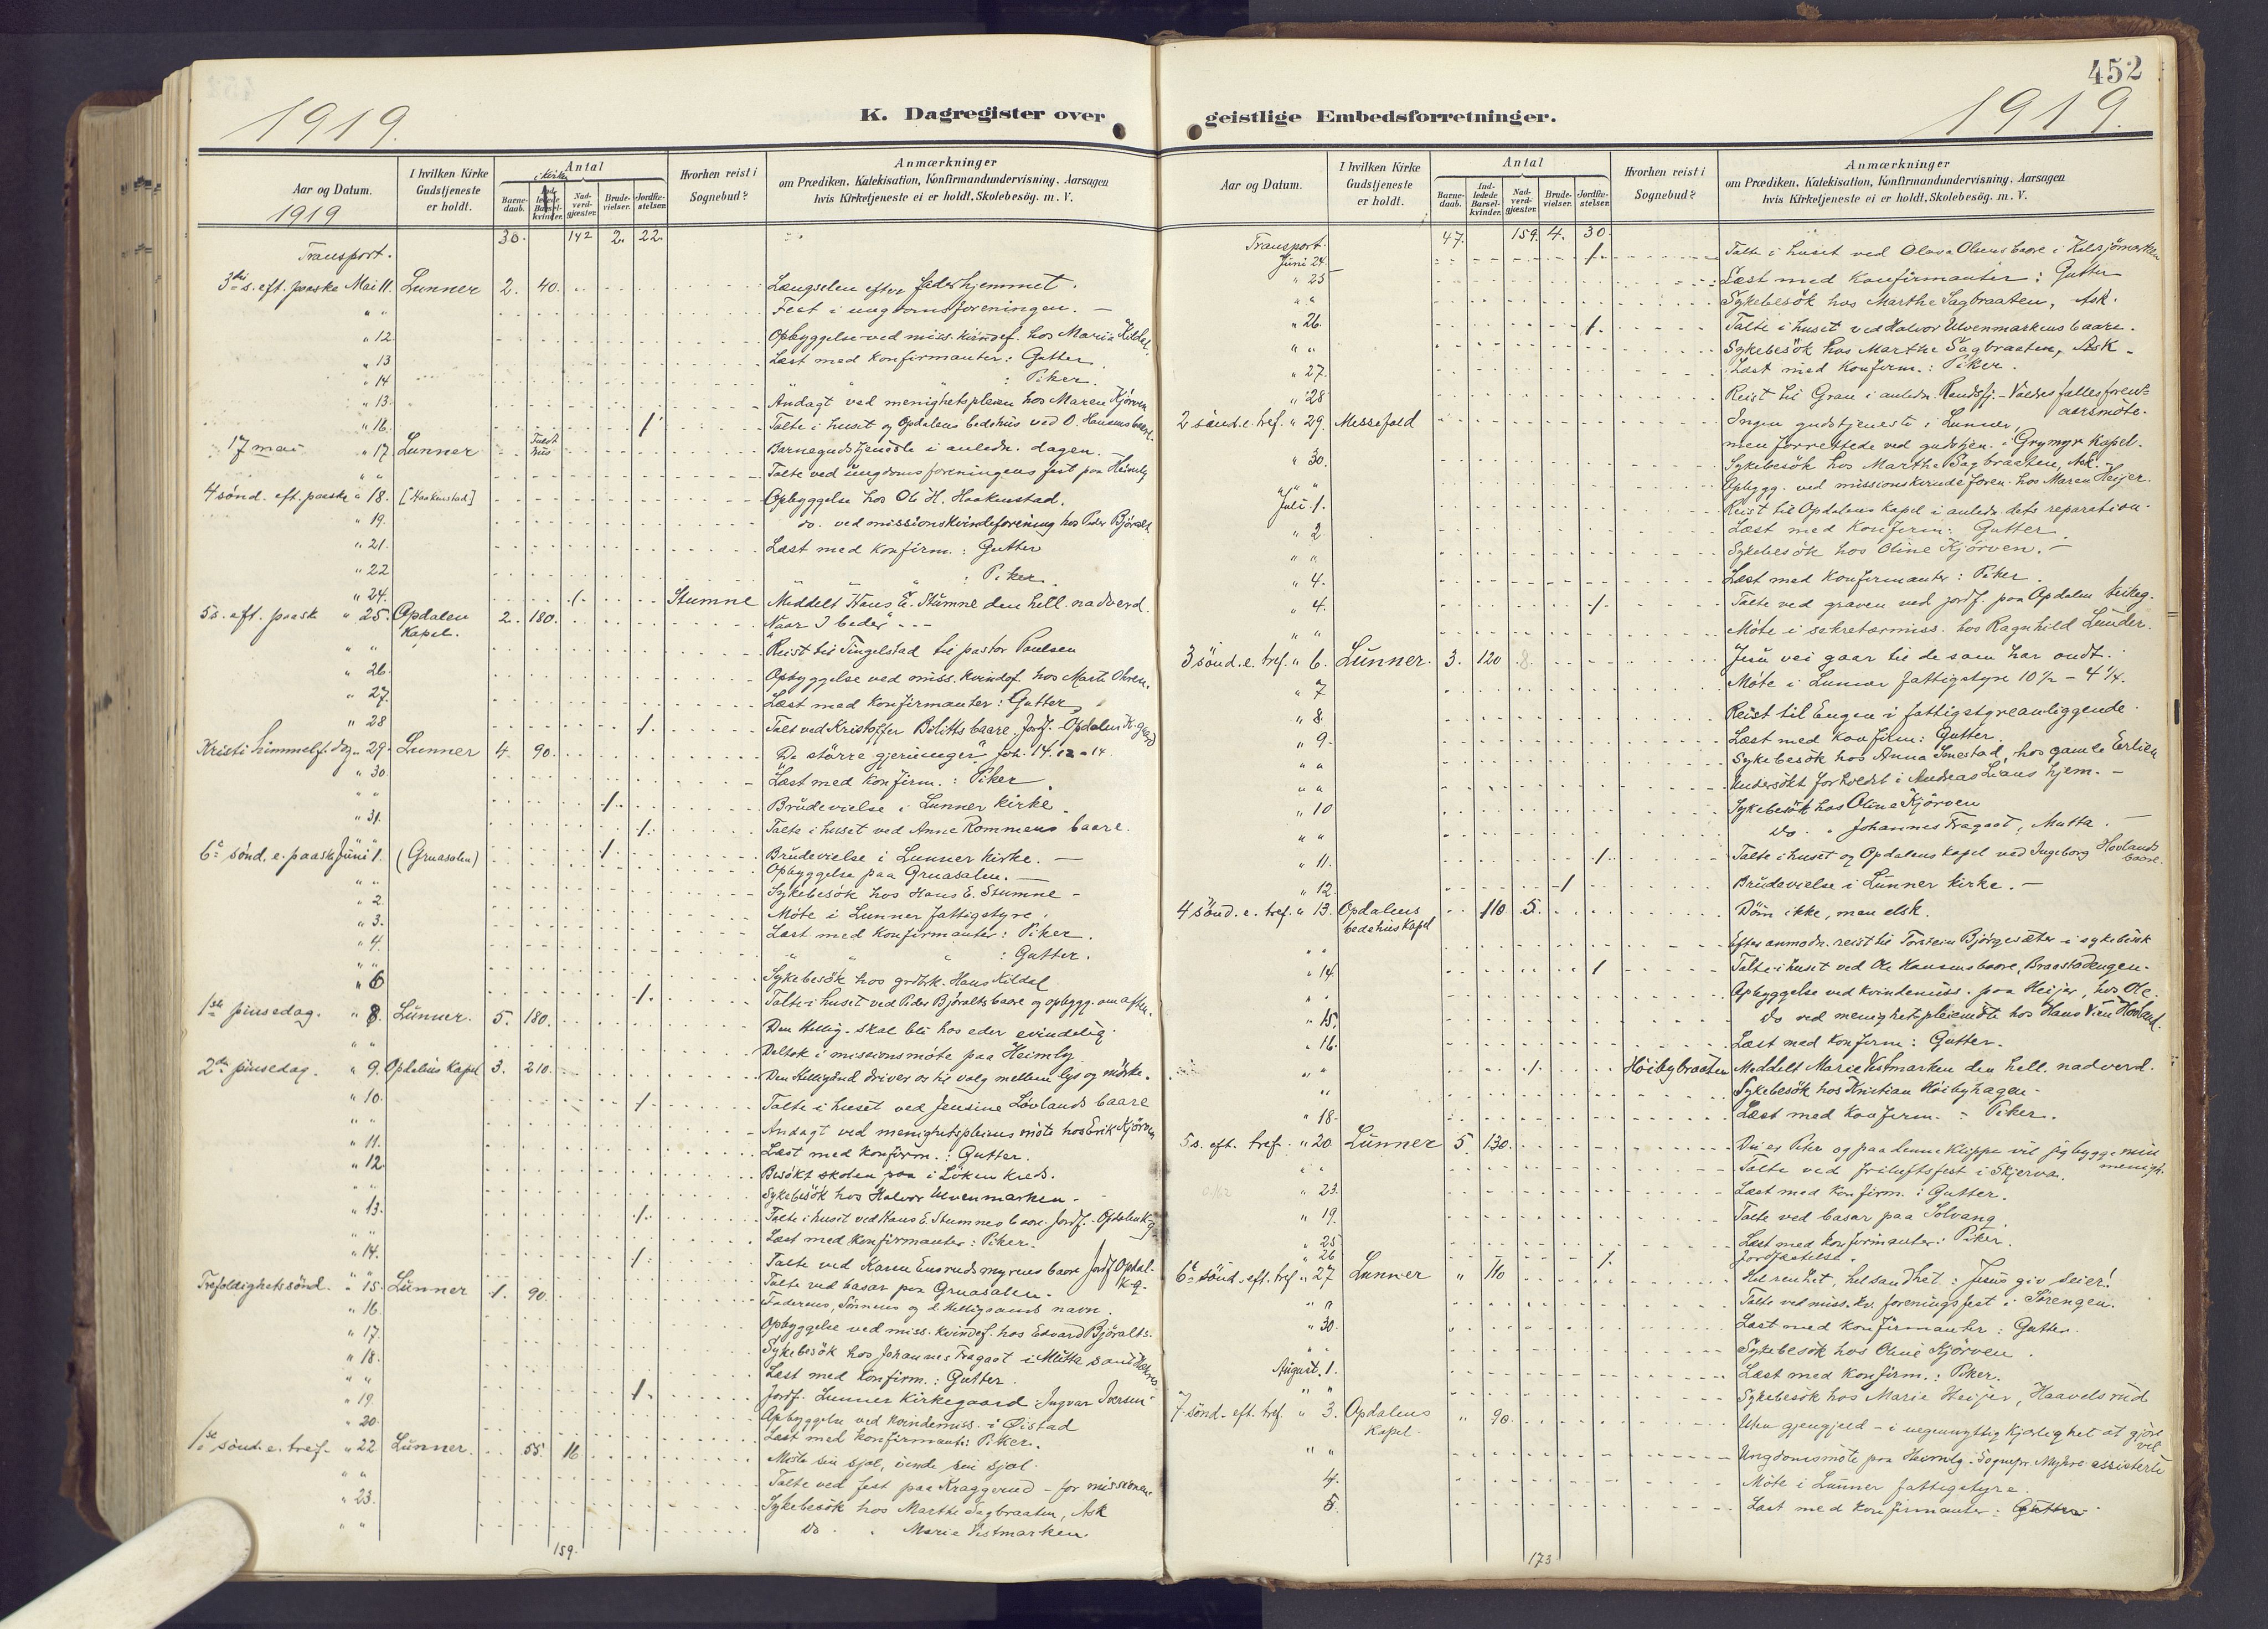 452
1919.
K. Dagregister over
geistlige Embedsforretninger.
1919.
Aar og Datum.
1919
I hvilken Kirke Gudstjeneste er holdt.
Antal
i Kirke
Barne-daab.
Ind-ledede Barsel-kvinder.
Nad-verd-gjæster.
Brude-vielser.
Jordfæ-stelser.
Hvorhen reist i Sognebud?
Anmærkninger
om Prædiken, Katekisation, Konfirmandundervisning, Aarsagen
hvis Kirketjeneste ei er holdt, Skolebesög. m. V.
Transport. 30. 142 2. 22.
3die s. eft. paaske Mai 11. Lunner 2. 40. Længselen efter faderhjemmet.
" " Fest i ungdomsforeningen. —
" 12 Opbyggelse ved miss. kvindef. hos Maria Kildal.
" 13 Læst med konfirmanter: Gutter
" 14 " " : Piker.
" 13. Andagt ved menighetspleien hos Maren Kjörven
" 16. 1 Talte i huset og Opdalens bedehus ved O. Hansens baare.
17 mai " 17. Lunner Fuldt hus Barnegudstjeneste i anledn. dagen.
" " Talte ved ungdomsforeningens fest paa Heimly
4 sönd. eft. paaske " 18. [Haakenstad] Opbyggelse hos Ole H. Haakenstad.
" 19. do. ved missionskvindeforening hos Peder Björalt.
" 21. Læst med konfirm.: Gutter
" 22 : Piker.
" 24. 1. Stumne Meddelt Hans E. Stumne den hell. nadverd.
5 s. eft. paask " 25. Opdalen Kapel. 2. 180. "Naar I beder" - - -
" " Reist til Tingelstad til pastor Paulsen
" 26. Opbyggelse ved miss. kvindef. hos Marte Ohren.
" 27. Læst med konfirmanter: Gutter
" 28 1. Talt ved Kristoffer Bölitts baare. Jordf. Opdalen K.gaard
Kristi himmelf. dag " 29. Lunner 4. 90. De större gjerninger" Joh. 14. 12-14.
" 30 Læst med konfirm.: Piker
" " 1. Brudevielse i Lunner kirke.
" 31. 1. Talte i huset ved Anne Rommens baare.
" " 1. Brudevielse i Lunner kirke. —
6te sönd. e. paaske Juni 1. (Gruasalen) Opbyggelse paa Gruasalen. —
" " Sykebesök hos Hans E. Stumne -
" 2. Möte i Lunner fattigstyre.
" 3. Læst med konfirmanter: Piker.
" 4. " " : Gutter.
" " Sykebesök hos grdbr. Hans Kildal
" 6 1. Talte i huset ved Peder Björalts baare og opbygg. om aften.
1ste pinsedag. " 8. Lunner. 5. 180. Den Hellig. skal bli hos eder evindelig.
" " Deltok i missionsmöte paa Heimly.
2den pinsedag. " 9. Opdalens Kapel 3. 210. Den Helligaand driver os til valg mellem lys og mörke.
" 10. 1. Talte i huset ved Jensine Lövlands baare
" " Andagt ved menighetspleiens möte hos Erik Kjörven
" 11. Læst med konfirm.: Gutter.
" 12 Besökt skolen i Löken kreds.
" " Sykebesök hos Halvor Ulvenmarken -
" 13. 1. Talte i huset ved Hans E. Stumnes baare. Jordf. Opdalen Kg.
" " Læst med konfirmanter: Piker.
" 14. 1 Talte ved Karen Ensrudsmyrens baare Jordf Opdal. K-g.
" " Talte ved basar paa Gruasalen.
Trefoldighetssönd. " 15. Lunner 1. 90. Faderens, Sönnens og d. Helligaands navn.
" 16. Opbyggelse ved miss. kvindef. hos Edvard Björalts.
" 17. Sykebesök hos Johannes Tragaat i Mutta
" 18. Læst med konfirm.: Gutter.
" 19. 1. Jordf. Lunner Kirkegaard: Ingvar Iversen
" 20. Opbyggelse ved kvindemiss. i Öistad
Læst med konfirmant.: Piker.
1ste sönd. e. tref. " 22 Lunner. 55. 16 Miste sin sjæl, vinde sin sjæl.
" " Talte ved fest paa Kraggerud - for missionen
" 23. Sykebesök hos Marthe Sagbraaten, Ask
" " Do. " Marie Vestmarken.
159.
Aar og Datum.
I hvilken Kirke Gudstjeneste er holdt.
Antal
Barne-daab.
Ind-ledede Barsel-kvinder.
Nad-verd-gjæster.
Brude-vielser.
Jordfæ-stelser.
Hvorhen reist i Sognebud?
Anmærkninger
om Prædiken, Katekisation, Konfirmandundervisning, Aarsagen
hvis Kirketjeneste ei er holdt, Skolebesög. m. V.
Transport. 47. 159. 4. 30.
Juni 24. 1. Talte i huset ved Olava Olsens baare i Kalsjömarken
" 25 Læst med konfirmanter: Gutter
" " Sykebesök hos Marthe Sagbraaten, Ask.
" 26. 1. Talte i huset ved Halvor Ulvenmarkens baare.
" " Sykebesök hos Marthe Sagbraaten, Ask -
" 27. Læst med konfirm.: Piker.
" 28 Reist til Gran i anledn. Randsfj.-Valdres fællesforen= aarsmöte.
2 sönd. e. tref. " 29. Messefald Ingen gudstjeneste i Lunner,
men forrettede ved gudstjen. i Grymyr Kapel.
" 30. Sykebesök hos Marthe Sagbraaten, Ask. -
" " Opbygg. ved missionskvindeforen. hos Maren Heijer.
Juli 1. Reist til Opdalens Kapel i anledn. dets reparation.
" 2 Læst med konfirm: Gutter
" " Sykebesök hos Oline Kjörven. -
" 4. Læst med konfirmanter: Piker
" 4. 1. Talte ved graven ved jordf. paa Opdalen
" " Möte i sekretærmiss. hos Ragnhild Lunder.
3 sönd. e. tref. " 6. Lunner. 3. 120 8. Jesu vei gaar til de som har ondt.
" 7 Möte i Lunner fattigstyre 10 1/2 - 4 1/4.
" 8. Reist til Eugen i fattigstyreanliggende.
" 9. Læst med konfirm: Gutter.
" " Sykebesök hos Anna Smestad, hos gamle Eriksen
" " Undersökt forholdet i Andreas Liens hjem. -
" 10 Sykebesök hos Oline Kjörven
" " Do. " Johannes Tragaat, Mutta. —
" 11. 1. Talte i huset og Opdalens kapel ved Ingeborg Hovlands baare.
" 12 1 Brudevielse i Lunner kirke. -
4 sönd. e. tref. " 13. Opdalens bedehuskapel 110 5. Döm ikke, men elsk.
" " Efter anmodn. reist til Torstein Björgesæter i sykebesök
" 14. 1 Talte i huset ved Ole Hansens baare, Braastadengen.
" " Opbyggelse ved kvindemiss. paa Heijer, hos Ole.
" 15. Do ved menighetspleiemöte hos Hans Hovland.
" 16. Læst med konfirm: Gutter.
" " 1. Höibybraaten Meddelt Marie Vestmarken den hell. nadverd.
" " Sykebesök hos Kristian Höibyhagen -
" 18. Læst med konfirm. : Piker.
5 s. eft. tref. " 20. Lunner 5. 130. Du er Peter og paa denne klippe vil jeg bygge min menigh.
" " Talte ved friluftsfest i Skjerva.
" 23. Læst med konfirm.: Gutter.
" 19. Talte ved basar paa Solvang.
" 25 Læst med konfirmanter: Piker.
" 26 1. Jordfæstelse.
6te sönd. eft. tref " 27 Lunner " 110 Hel renhet, hel sandhet: Jesus giv seier!
" " Talte ved miss. kv. foreningsfest i Sörengen.
" 30. Læst med konfirmanter: Gutter.
" " Sykebesök hos Oline Kjörven.
August. 1. Læst med konfirm.: Piker.
" " Sykebesök hos Marie Heijer, Haavelsrud
7 sönd. eft. tref. " 3. Opdalens Kapel. " 90. Uten gjengjeld - i uegennyttig kjærlighet at gjöre vel
" " Ungdomsmöte paa Heimly. Sognepr. Myhre assisterte
4. Möte i Lunner fattigstyre.
5. Læst med konfirmanter: Gutter
173